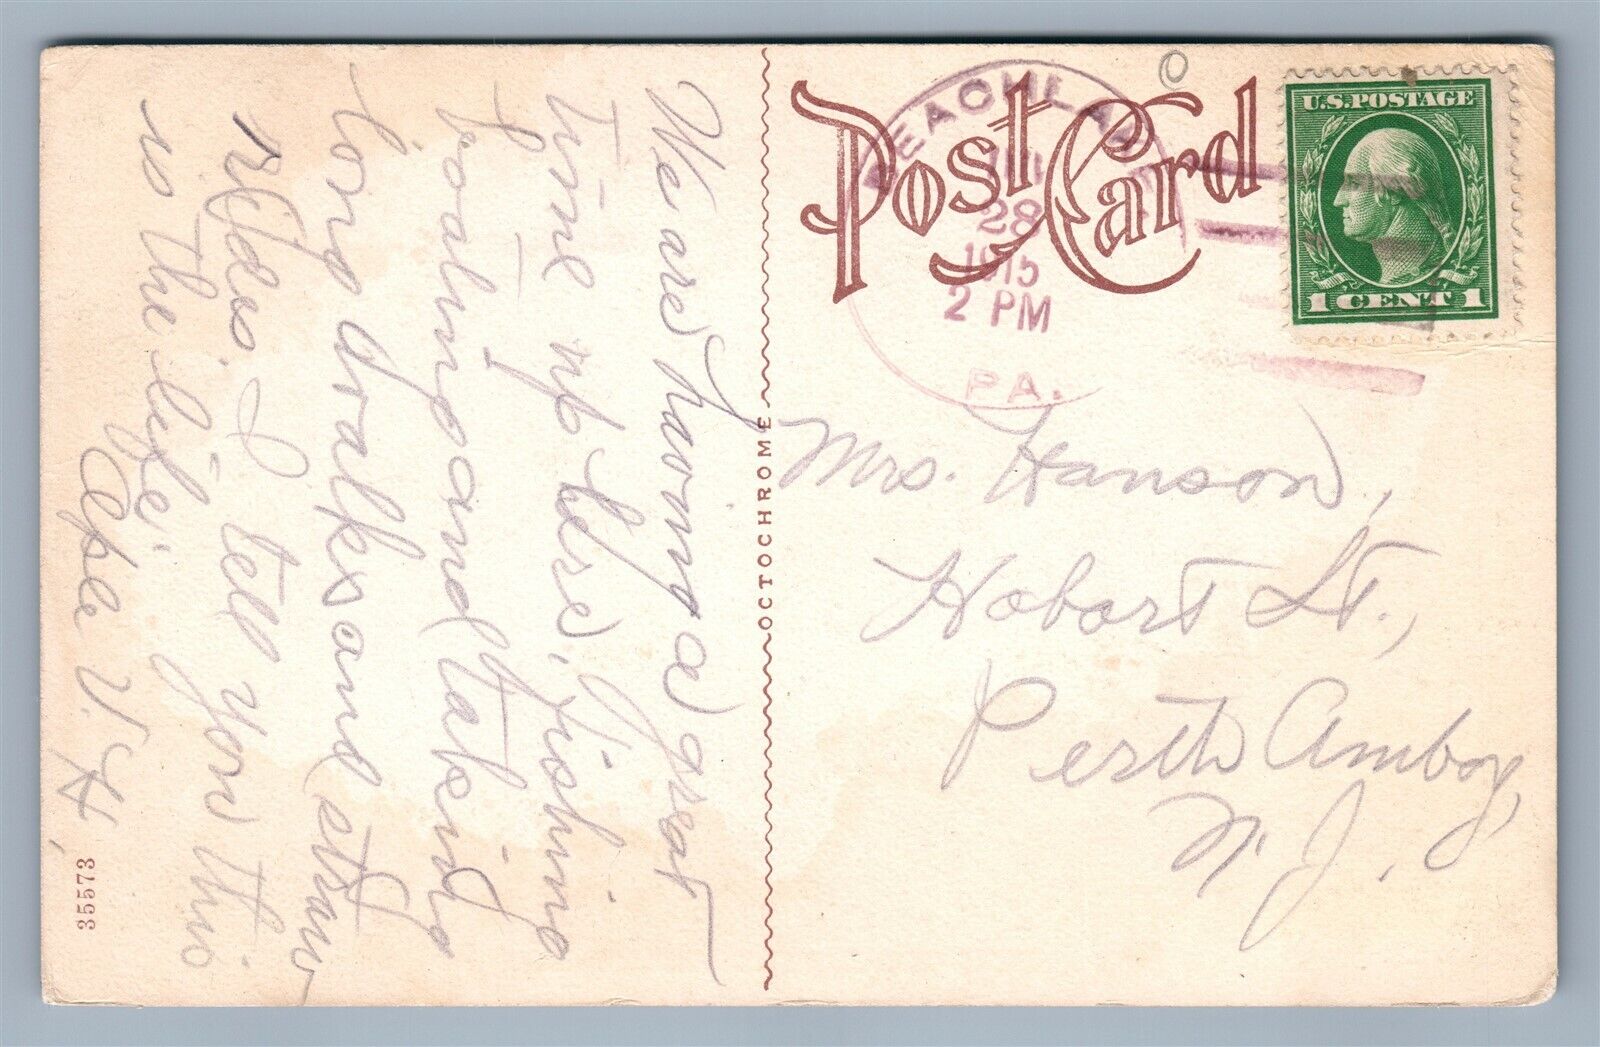 Post Card
U.S. POSTAGE
1 CENT 1
28
1915
2 PM
PA.
We are having a great
time up here, fishing
boating and taking
long walks and straw
rides. I tell you this
is the life.
V. H.
Mrs. Hanson,
Hobart St.,
Perth Amboy,
N. J.
OCTOCHROME
35573